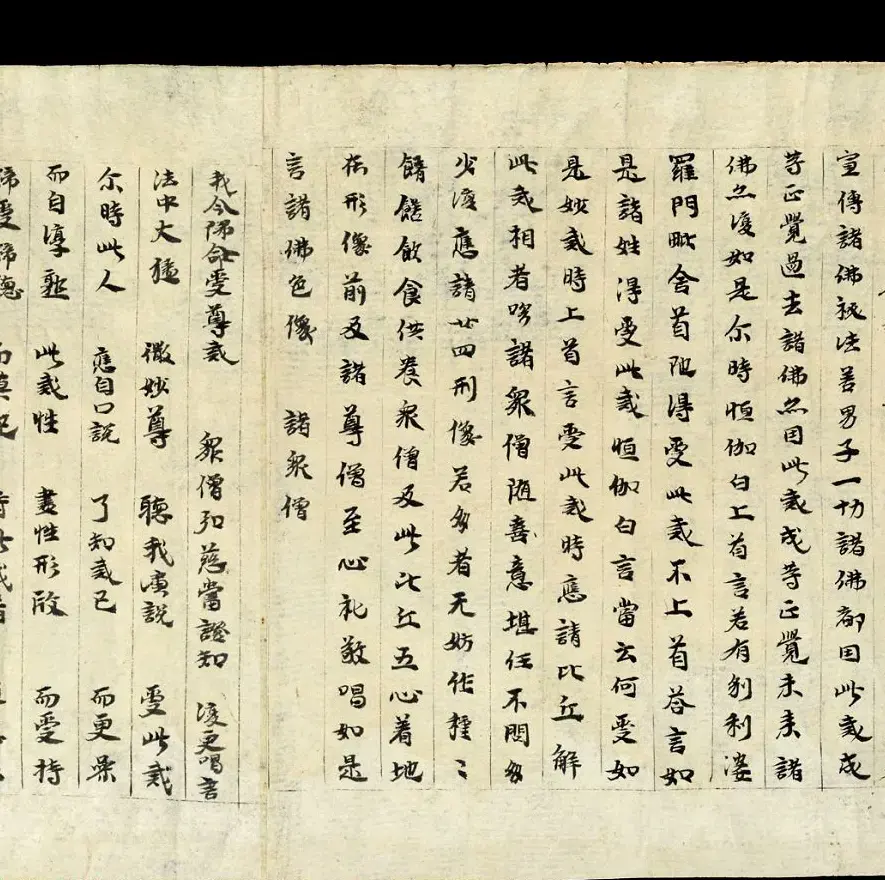 宣傳諸佛秘法善男子一切諸佛都因此戒成
等正覺過去諸佛亦因此戒成等正覺未來諸
佛亦復如是尒時恒伽白上首言若有刹利婆
羅門毗舍首陁得受此戒不上首荅言如
是諸姓得受此戒恒伽白言當云何受如
是妙戒時上首言受此戒時應請比丘解
此戒相者諸衆僧随喜意堪任不問多
少復應請廿四形像若多者无妨作種々
餚饍飲食供養衆僧及此比丘五心着地
在形像前及諸尊僧至心礼敬唱如是
言諸佛色像 諸衆僧
我今歸命受尊戒 衆僧弘慈當證知 復更唱言
法中大猛 微妙尊 聽我演說 受此戒
尒時此人 應自口說 了知戒已 而更
而自 此戒性 盡性形 而受持